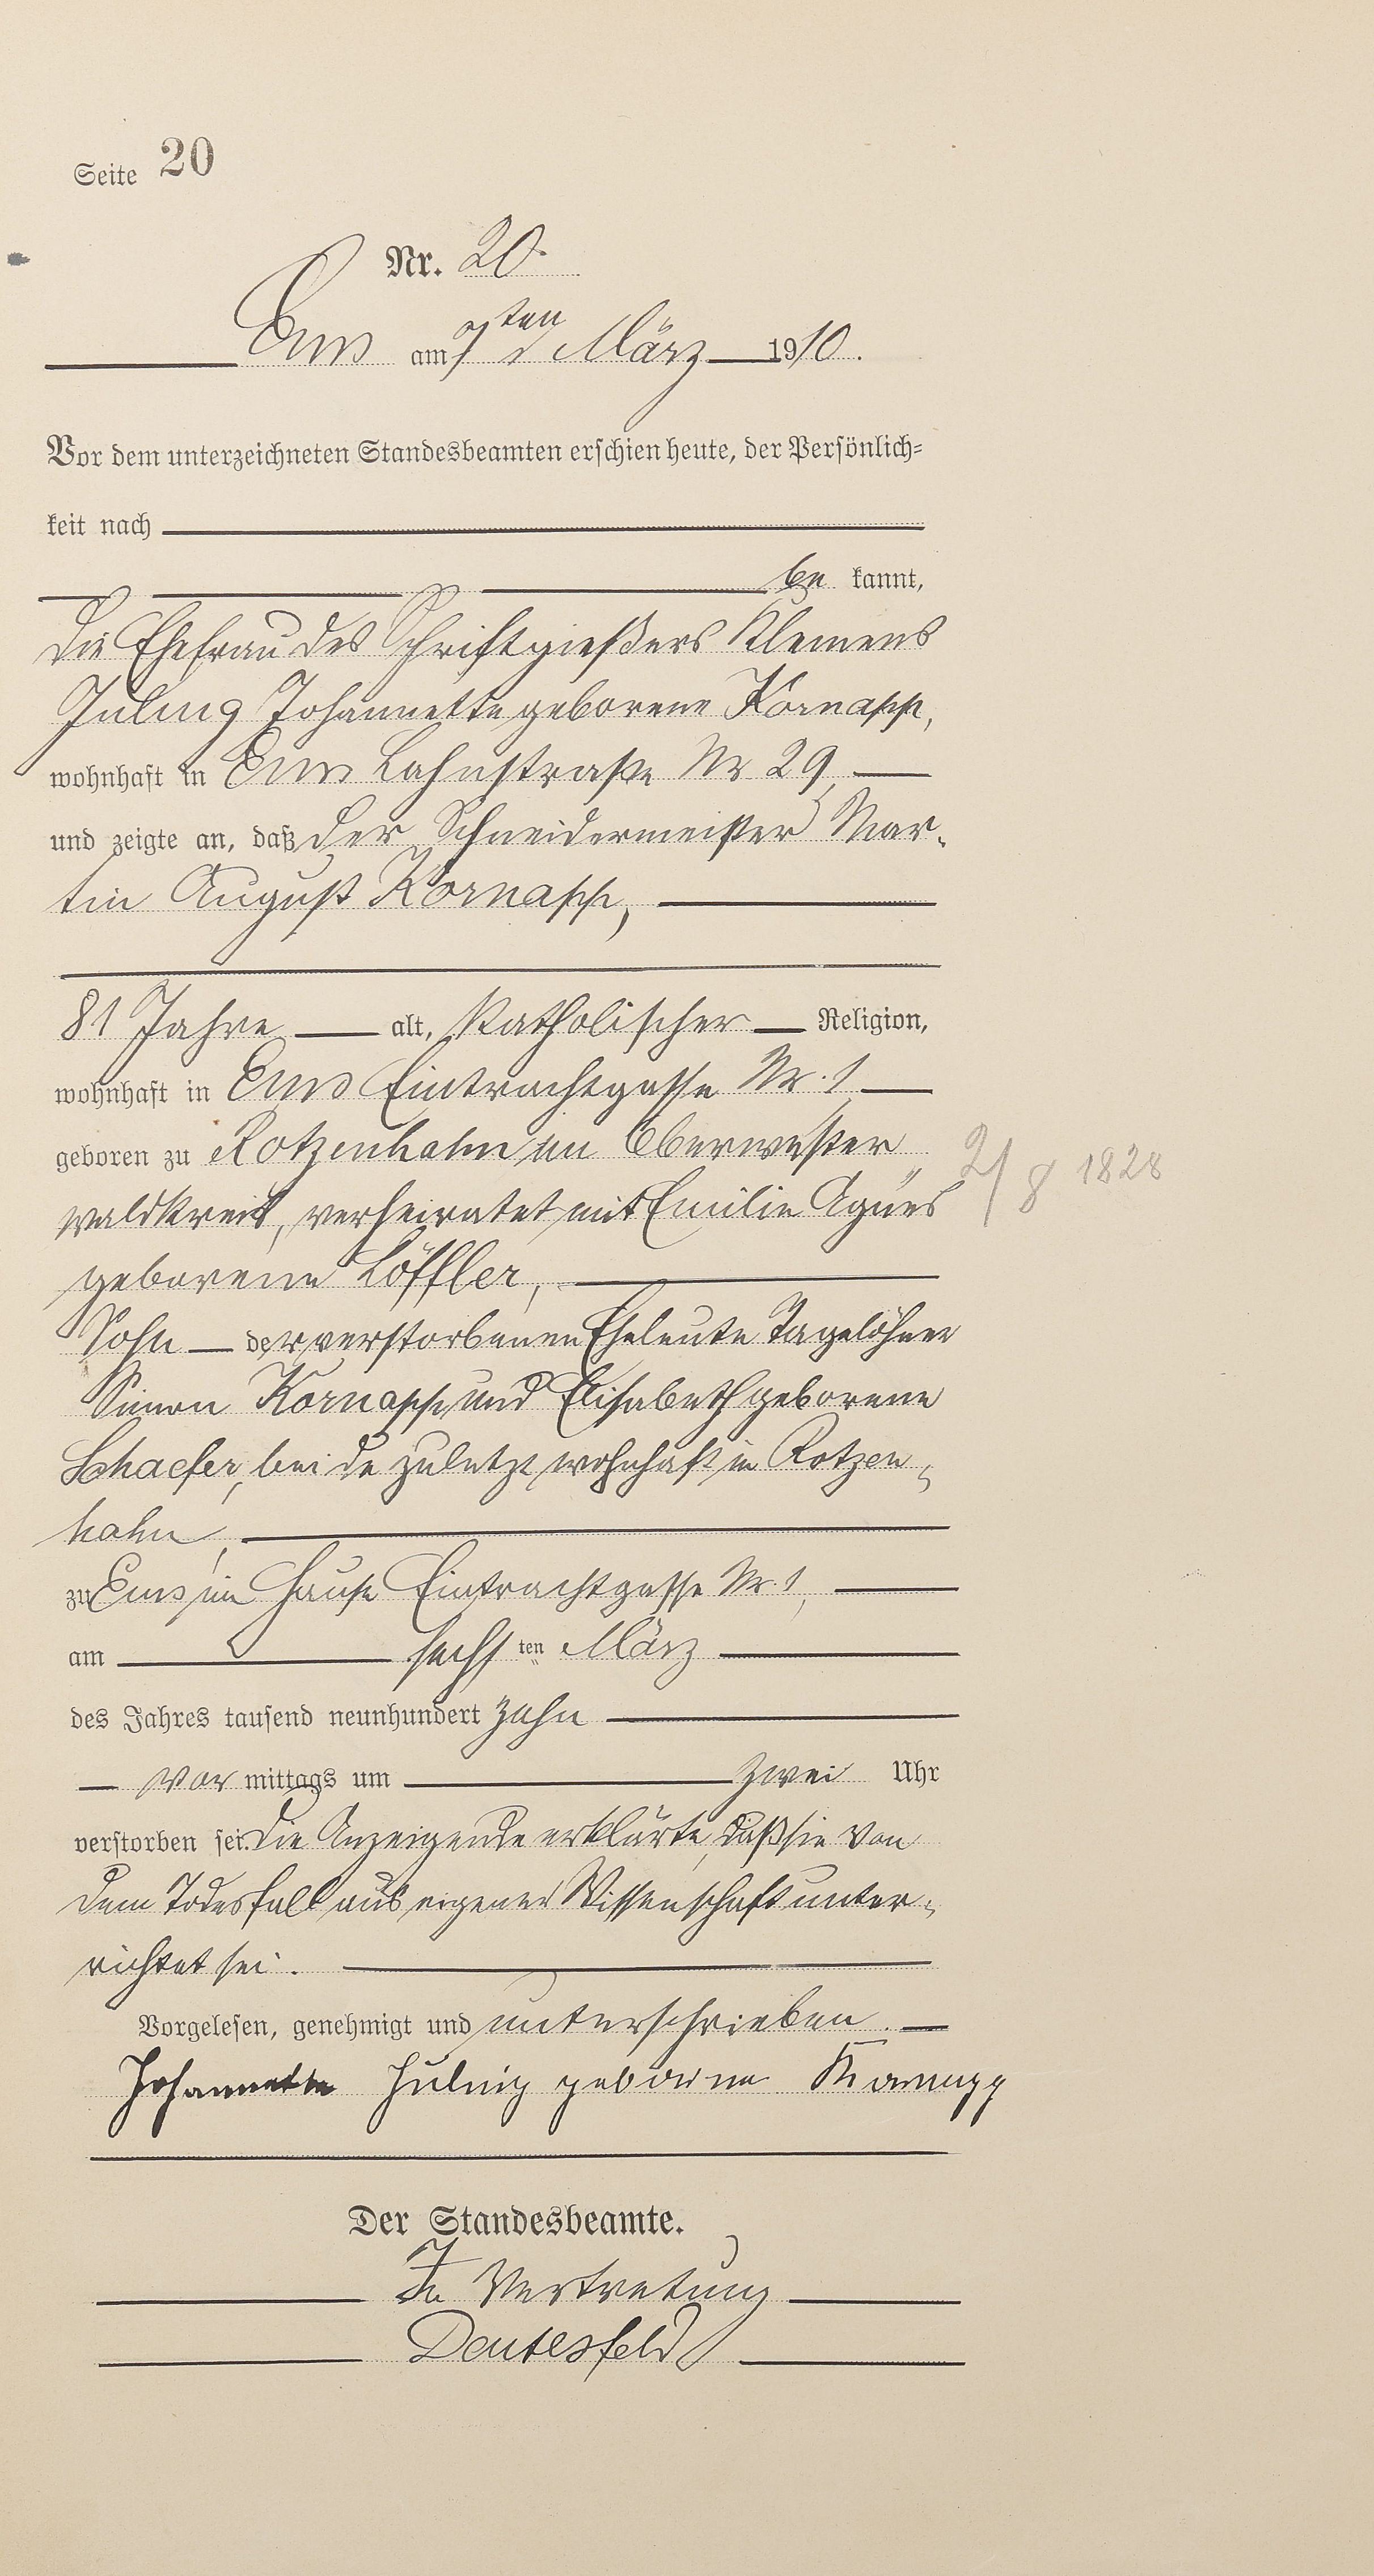 Seite 20
Nr. 20.
Ems am 7ten März 1910.
Vor dem unterzeichneten Standesbeamten erschien heute, der Persönlich=
keit nach
be kannt,
die Ehefrau des Schriftgießers Klemens
Johannette geborene Kornapp,
wohnhaft in Ems Lahnstraße Nr 29,
und zeigte an, daß der Schneidermeister Mar-
tin August Kornapp,
81 Jahre alt, katholischer Religion,
wohnhaft in Ems Eintrachtgasse Nr. 1
geboren zu Rotzenhahn im Oberwester„ 2/8 1828
waldkreis, verheiratet mit Emilie Agnes
geborene Löffler,
Sohn der verstorbenen Eheleute Tagelöhner
Simon Kornapp und Elisabeth geborene
Schaefer, beide zuletzt wohnhaft in Rotzen„
hahn,
zu Ems im Hause Eintrachtgasse Nr. 1,
am sechsten März
des Jahres tausend neunhundert zehn
vor mittags um zwei Uhr
verstorben sei. Die Anzeigende erklärte, daß sie von
dem Todesfall aus eigener Wissenschaft unter„
richtet sei.
Vorgelesen, genehmigt und unterschrieben.
Johannette geborene Kornapp
Der Standesbeamte.
In Vertretung
Deutesfeld